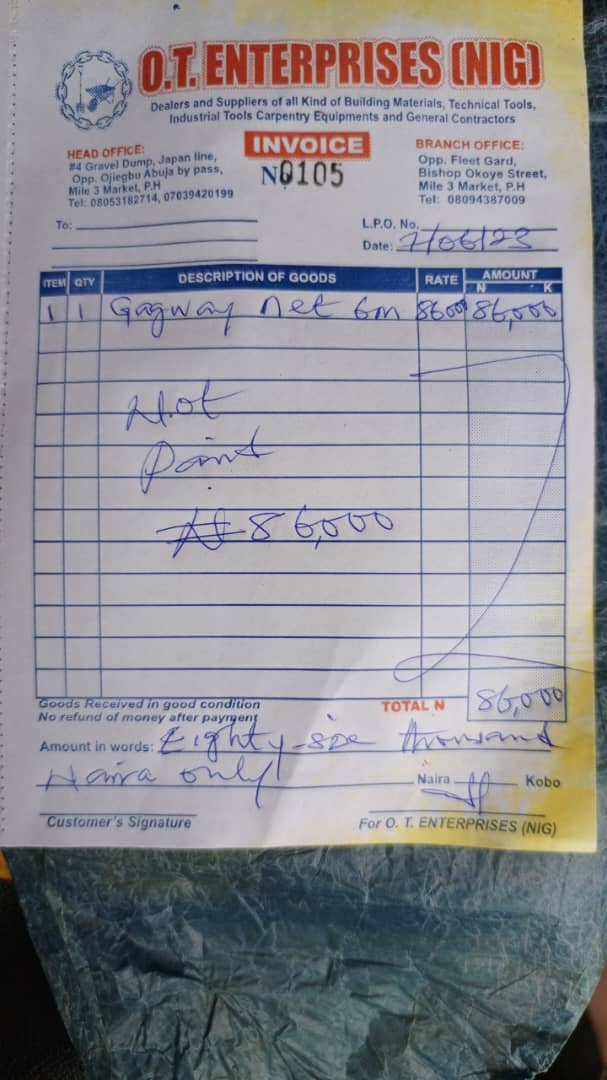 O.T. ENTERPRISES (NIG)
Dealers and Suppliers of all Kind of Building Materials, Technical Tools,
Industrial Tools Carpentry Equipments and General Contractors
HEAD OFFICE:
#4 Gravel Dump, Japan line,
Opp. Ojiegbu Abuja by pass,
Mile 3 Market, P.H
Tel: 08053182714, 07039420199
INVOICE
No 0105
BRANCH OFFICE:
Opp. Fleet Gard,
Bishop Okoye Street,
Mile 3 Market, P.H
Tel: 08094387009
To:
L.P.O. No.
Date: 7/06/23
ITEM QTY DESCRIPTION OF GOODS RATE AMOUNT
N K
1 1 Gagway net 6m 86000 86,000
Not
Paint
₦86,000
Goods Received in good condition
No refund of money after payment
TOTAL N 86,000
Amount in words: Eighty-six thousand
Naira only
Naira Kobo
Customer's Signature
For O. T. ENTERPRISES (NIG)